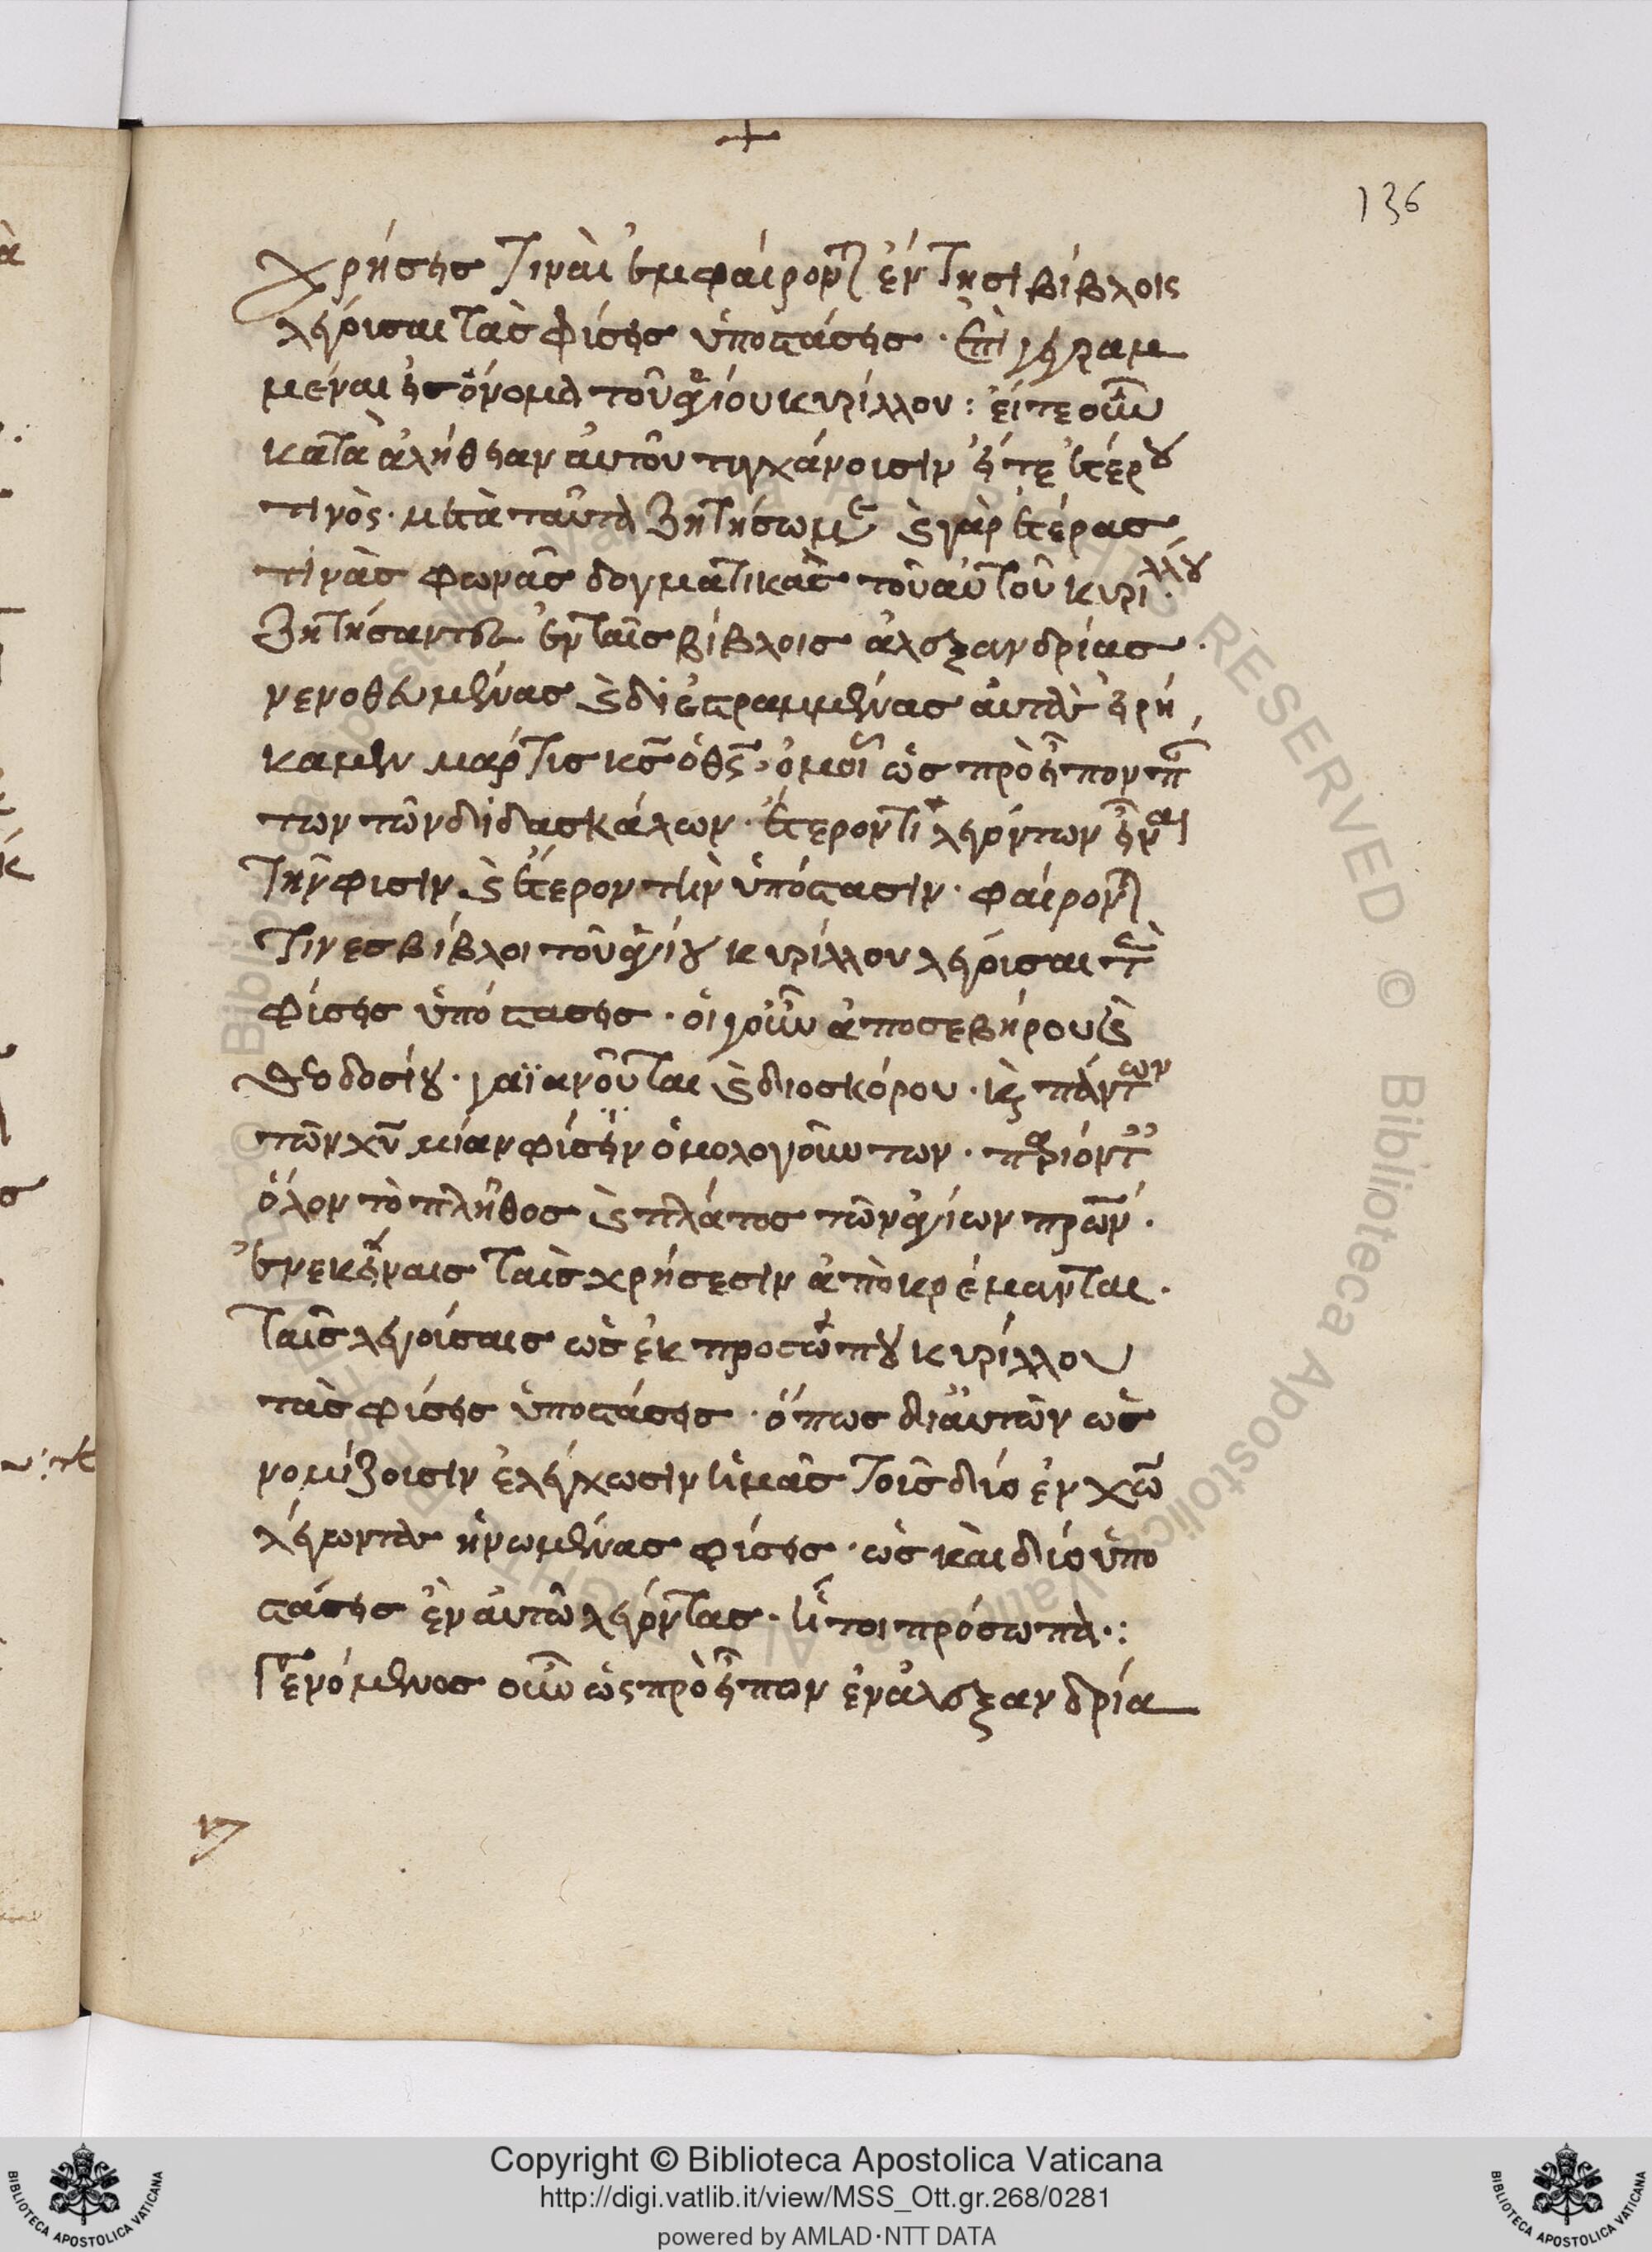 136
χρήσεις τιναὶ ἐμφαίρονται ἐν τησι βίβλοις
λέγουσαι τὰς φύσεις ὑποστάσεις · ἐπιγεγραμ
μέναι εἰς ὄνομα τοῦ ἁγίου κυρίλλου : εἴτε οὖν
κατὰ ἀλήθειαν αὐτοῦ τυγχάνουσιν εἴτε ἑτέρου
τινὸς · μετὰ ταῦτα ζητήσωμεν καὶ γὰρ ἑτέρας
τινὰς φωνὰς δογματικὰς τοῦ αὐτοῦ κυρίλλου
ζητήσαντες ἐν ταῖς βίβλοις ἀλεξανδρίας ·
νενοθευμένας καὶ διεστραμμένας αὐτὰς εὑρή
καμεν μάρτυς κς ὁ θς · ὁμοίως ὡς προεῖπον
των τῶν διδασκάλων · ἕτερόν τι λεγόντων εἶναι
τὴν φύσιν καὶ ἕτερον τὴν ὑπόστασιν · φαίρονται
τινες βίβλοι τοῦ ἁγίου κυρίλλου λέγουσαι τὰς
φύσεις ὑπόστασεις · οἱ γοῦν ἀπὸ σεβήρου καὶ
θεοδοσίου · γαϊανοῦται καὶ διοσκόρου · καὶ πάντων
τῶν χυ μίαν φύσιν ὁμολογούντων · παριόντες
ὅλον τὸ πλῆθος καὶ πλάτος τῶν ἁγίων πρων ·
ἐν ἐκείναις ταῖς χρήσεσιν ἀποκρέμανται ·
ταῖς λεγούσαις ὡς ἐκ προσώπου κυρίλλου
τὰς φύσεις ὑποστάσεις · ὅπως δι αὐτῶν ὡς
νομίζουσιν ἐλέγχωσιν ἡμᾶς τοῖς δύο ἐν χω
λέγοντας ἡνωμένας φύσεις · ὡς καὶ δύο ὑπο
στάσεις ἐν αὐτῶ λέγοντας · ἤτοι πρόσωπα · :
Γενόμενος οὖν ὡς προεῖπον ἐν ἀλεξανδρία
Copyright © Biblioteca Apostolica Vaticana
http://digi.vatlib.it/view/MSS_Ott.gr.268/0281
powered by AMLAD·NTT DATA